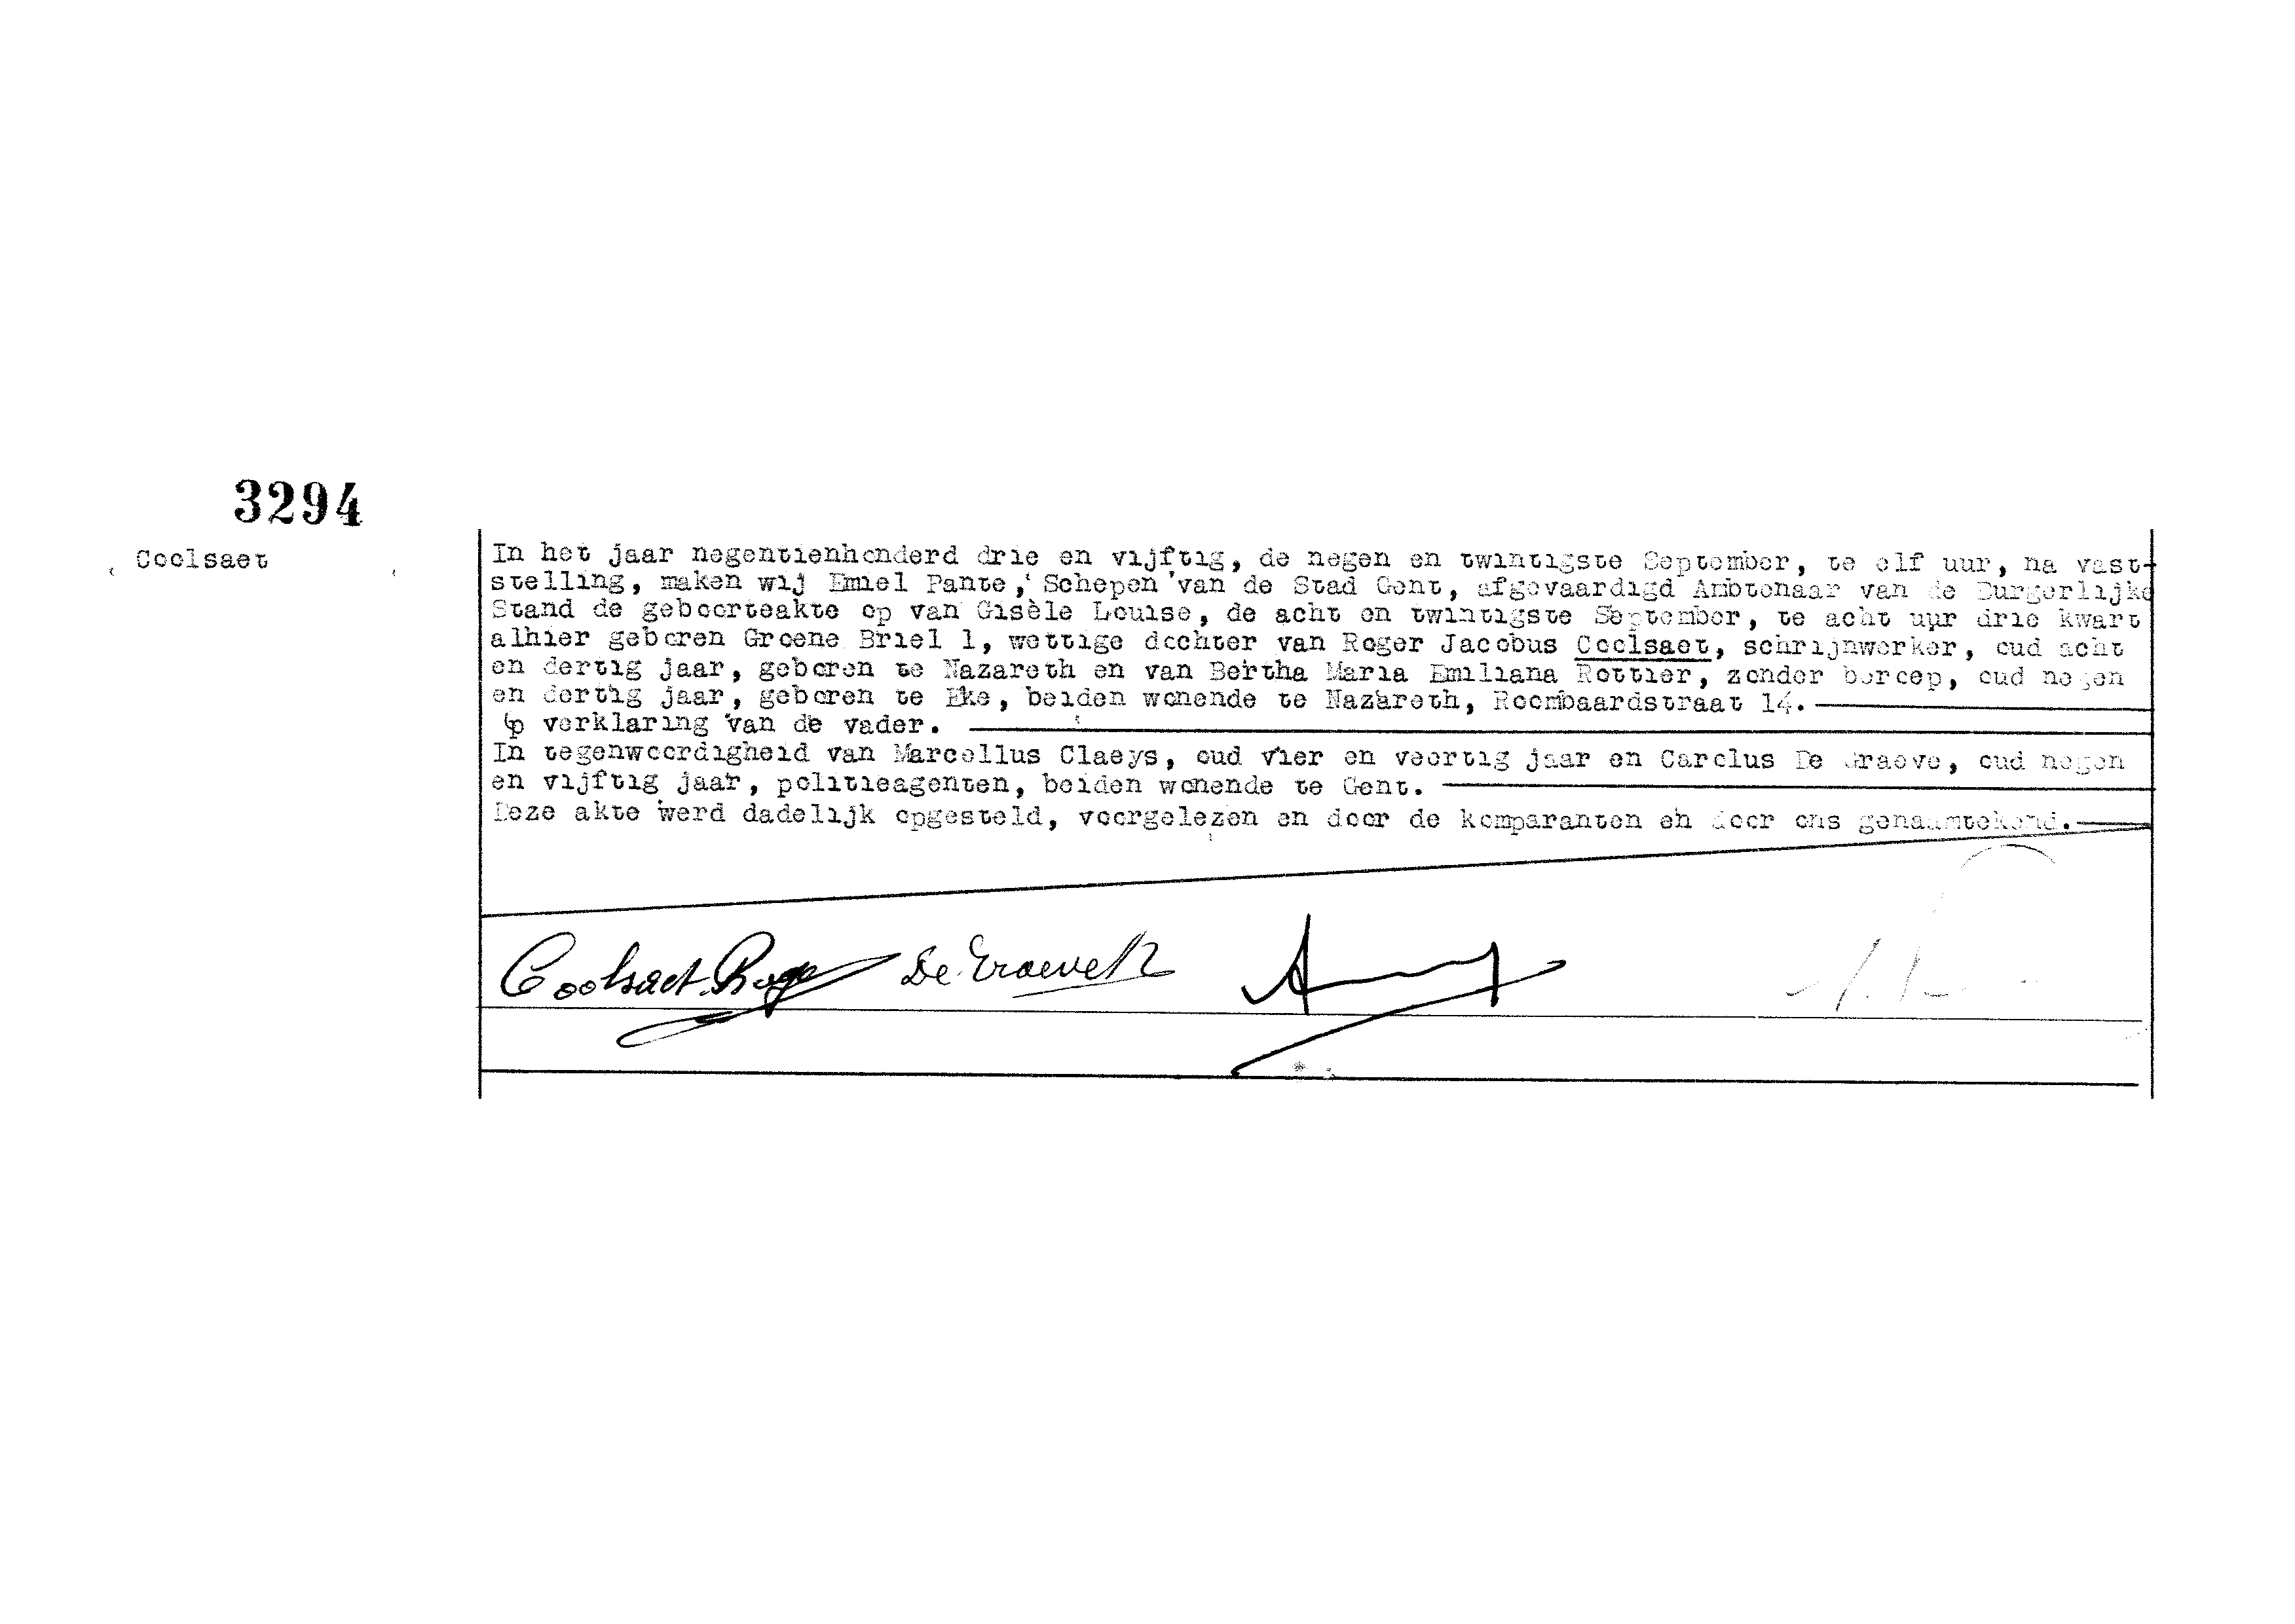 3294
Coolsaet
In het jaar negentienhonderd drie en vijftig, de negen en twintigste September, te elf uur, na vast-
stelling, maken wij Emiel Pante, Schepen van de Stad Gent, afgevaardigd Ambtenaar van de Burgerlijke
Stand de geboorteakte op van Gisèle Louise, de acht en twintigste September, te acht uur drie kwart
alhier geboren Groene Briel 1, wettige dochter van Roger Jacobus Coolsaet, schrijnwerker, oud acht
en dertig jaar, geboren te Nazareth en van Bertha Maria Emiliana Rottier, zonder beroep, oud negen
en dertig jaar, geboren te Eke, beiden wonende te Nazareth, Roombaardstraat 14.
Op verklaring van de vader.
In tegenwoordigheid van Marcellus Claeys, oud vier en veertig jaar en Carolus De Graeve, oud negen
en vijftig jaar, politieagenten, beiden wonende te Gent.
Deze akte werd dadelijk opgesteld, voorgelezen en door de komparanten en door ons genaamtekend.
Coolsaet Roger De Graeve K